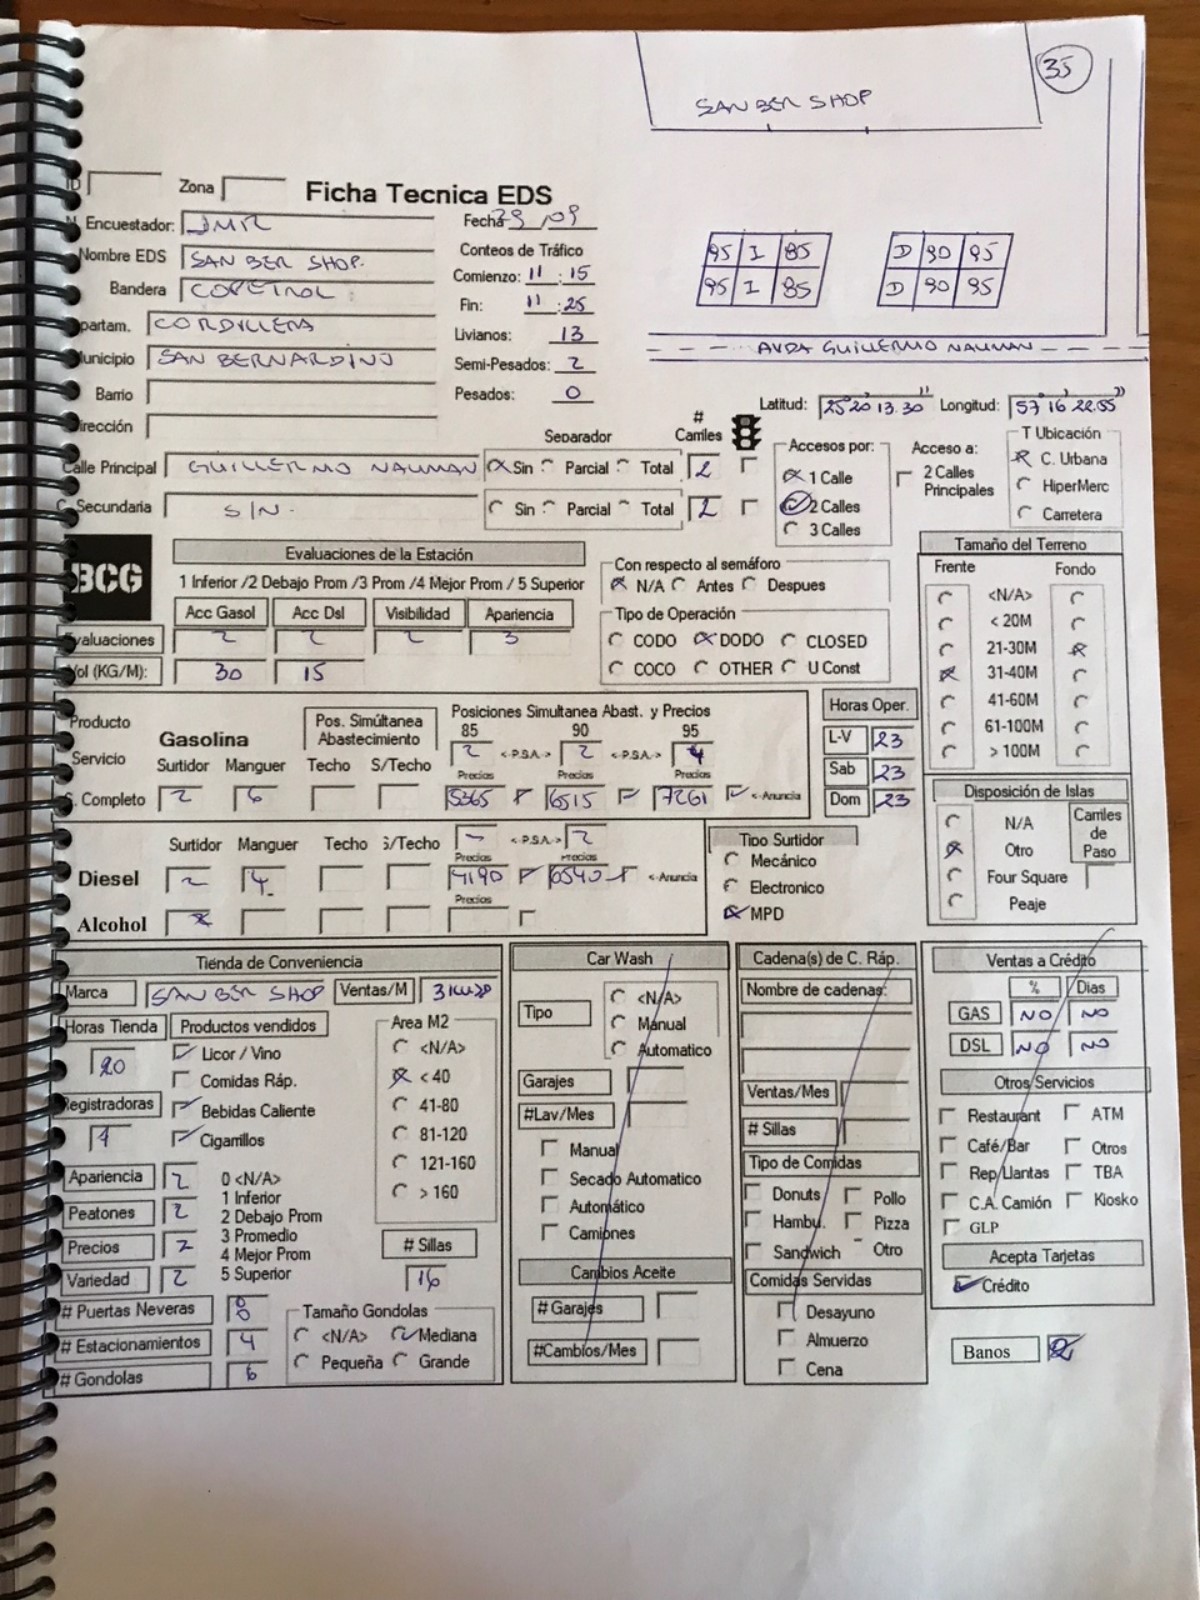 35
SAN BER SHOP
Zona
Ficha Tecnica EDS
Encuestador: JMR
Fecha 29/09
Nombre EDS SAN BER SHOP.
Conteos de Tráfico
Bandera COPETROL
Comienzo: 11:15
Fin: 11:25
partam. CORDILLERA
Livianos: 13
unicipio SAN BERNARDINO
Semi-Pesados: 2
Barrio
Pesados: 0
irección
95 I 85
95 I 85
D 90 95
D 90 95
AVDA GUILLERMO NAUMAN
Latitud: 25°20'13.30" Longitud: 57°16'22.55"
Separador
# Carriles
Calle Principal GUILLERMO NAUMAN Sin Parcial Total 2
C. Secundaria S/N. Sin Parcial Total 2
Accesos por:
1 Calle
2 Calles
3 Calles
Acceso a:
2 Calles
Principales
T Ubicación
C. Urbana
HiperMerc
Carretera
BCG
Evaluaciones de la Estación
1 Inferior /2 Debajo Prom /3 Prom /4 Mejor Prom / 5 Superior
Acc Gasol Acc Dsl Visibilidad Apariencia
Evaluaciones 2 2 2 3
Vol (KG/M): 30 15
Con respecto al semáforo
N/A Antes Despues
Tipo de Operación
CODO DODO CLOSED
COCO OTHER U Const
Tamaño del Terreno
Frente Fondo
<N/A>
< 20M
21-30M
31-40M
41-60M
61-100M
> 100M
Producto
Servicio
Gasolina
Pos. Simúltanea
Abastecimiento
Posiciones Simultanea Abast. y Precios
85 90 95
2 <-P.S.A.-> 2 <-P.S.A.-> 4
Surtidor Manguer Techo S/Techo Precios Precios Precios
S. Completo 2 6 5365 6515 7261 <-Anuncia
Horas Oper.
L-V 23
Sab 23
Dom 23
Disposición de Islas
N/A
Otro
Four Square
Peaje
Carriles
de
Paso
Surtidor Manguer Techo S/Techo - <-P.S.A.-> 2
Precios Precios
Diesel 2 4 4190 6540 <-Anuncia
Precios
Alcohol
Tipo Surtidor
Mecánico
Electronico
MPD
Tienda de Conveniencia
Marca SAN BER SHOP Ventas/M
Horas Tienda Productos vendidos
20
Licor / Vino
Comidas Ráp.
Registradoras Bebidas Caliente
1 Cigarrillos
Area M2
<N/A>
< 40
41-80
81-120
121-160
> 160
Apariencia 2
Peatones 2
Precios 2
Variedad 2
0 <N/A>
1 Inferior
2 Debajo Prom
3 Promedio
4 Mejor Prom
5 Superior
# Sillas
16
# Puertas Neveras 8
# Estacionamientos 4
# Gondolas 6
Tamaño Gondolas
<N/A> Mediana
Pequeña Grande
Car Wash
Tipo
<N/A>
Manual
Automatico
Garajes
#Lav/Mes
Manual
Secado Automatico
Automático
Camiones
Cambios Aceite
# Garajes
#Cambios/Mes
Cadena(s) de C. Ráp.
Nombre de cadenas:
Ventas/Mes
# Sillas
Tipo de Comidas
Donuts Pollo
Hambu. Pizza
Sandwich Otro
Comidas Servidas
Desayuno
Almuerzo
Cena
Ventas a Crédito
% Dias
GAS NO NO
DSL NO NO
Otros Servicios
Restaurant ATM
Café/Bar Otros
Rep/Llantas TBA
C.A. Camión Kiosko
GLP
Acepta Tarjetas
Crédito
Banos